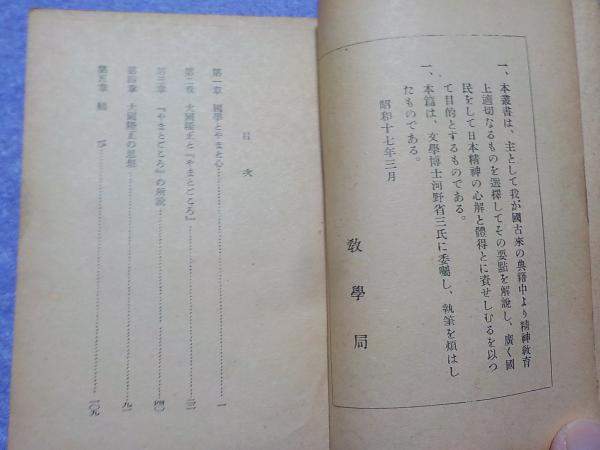 一、本叢書は、主として我が國古來の典籍中より精神敎育
上適切なるものを選擇してその要點を解說し、廣く國
民をして日本精神の心解と體得とに資せしむるを以つ
て目的とするものである。
一、本篇は、文學博士河野省三氏に委囑し、執筆を煩はし
たものである。
昭和十七年三月
敎學局
目次
第一章 國學とやまと心……一
第二章 大國隆正と『やまとごころ』……
第三章 『やまとごころ』の所說……四〇
第四章 大國隆正の思想……九一
第五章 結……一〇九